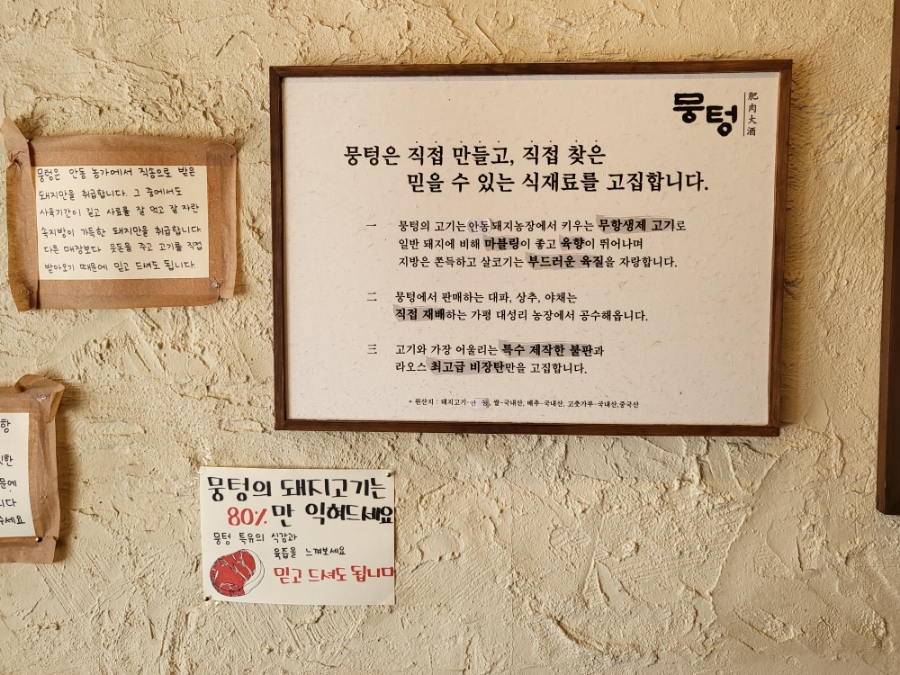 뭉텅은 안동 농가에서 직송으로 받은
돼지만을 취급합니다. 그 중에서도
사육기간이 길고 사료를 잘 먹고 잘 자란
속지방이 가득한 돼지만을 취급합니다
다른 매장보다 웃돈을 주고 고기를 직접
받아오기 때문에 믿고 드셔도 됩니다.
뭉텅
肥肉大酒
뭉텅은 직접 만들고, 직접 찾은
믿을 수 있는 식재료를 고집합니다.
一 뭉텅의 고기는 안동 돼지농장에서 키우는 무항생제 고기로
일반 돼지에 비해 마블링이 좋고 육향이 뛰어나며
지방은 쫀득하고 살코기는 부드러운 육질을 자랑합니다.
二 뭉텅에서 판매하는 대파, 상추, 야채는
직접 재배하는 가평 대성리 농장에서 공수해옵니다.
三 고기와 가장 어울리는 특수 제작한 불판과
라오스 최고급 비장탄만을 고집합니다.
* 원산지 : 돼지고기-안동, 쌀-국내산, 배추-국내산, 고춧가루-국내산,중국산
항
문에
니다
세요
뭉텅의 돼지고기는
80%만 익혀드세요
뭉텅 특유의 식감과
육즙을 느껴보세요
믿고 드셔도 됩니다